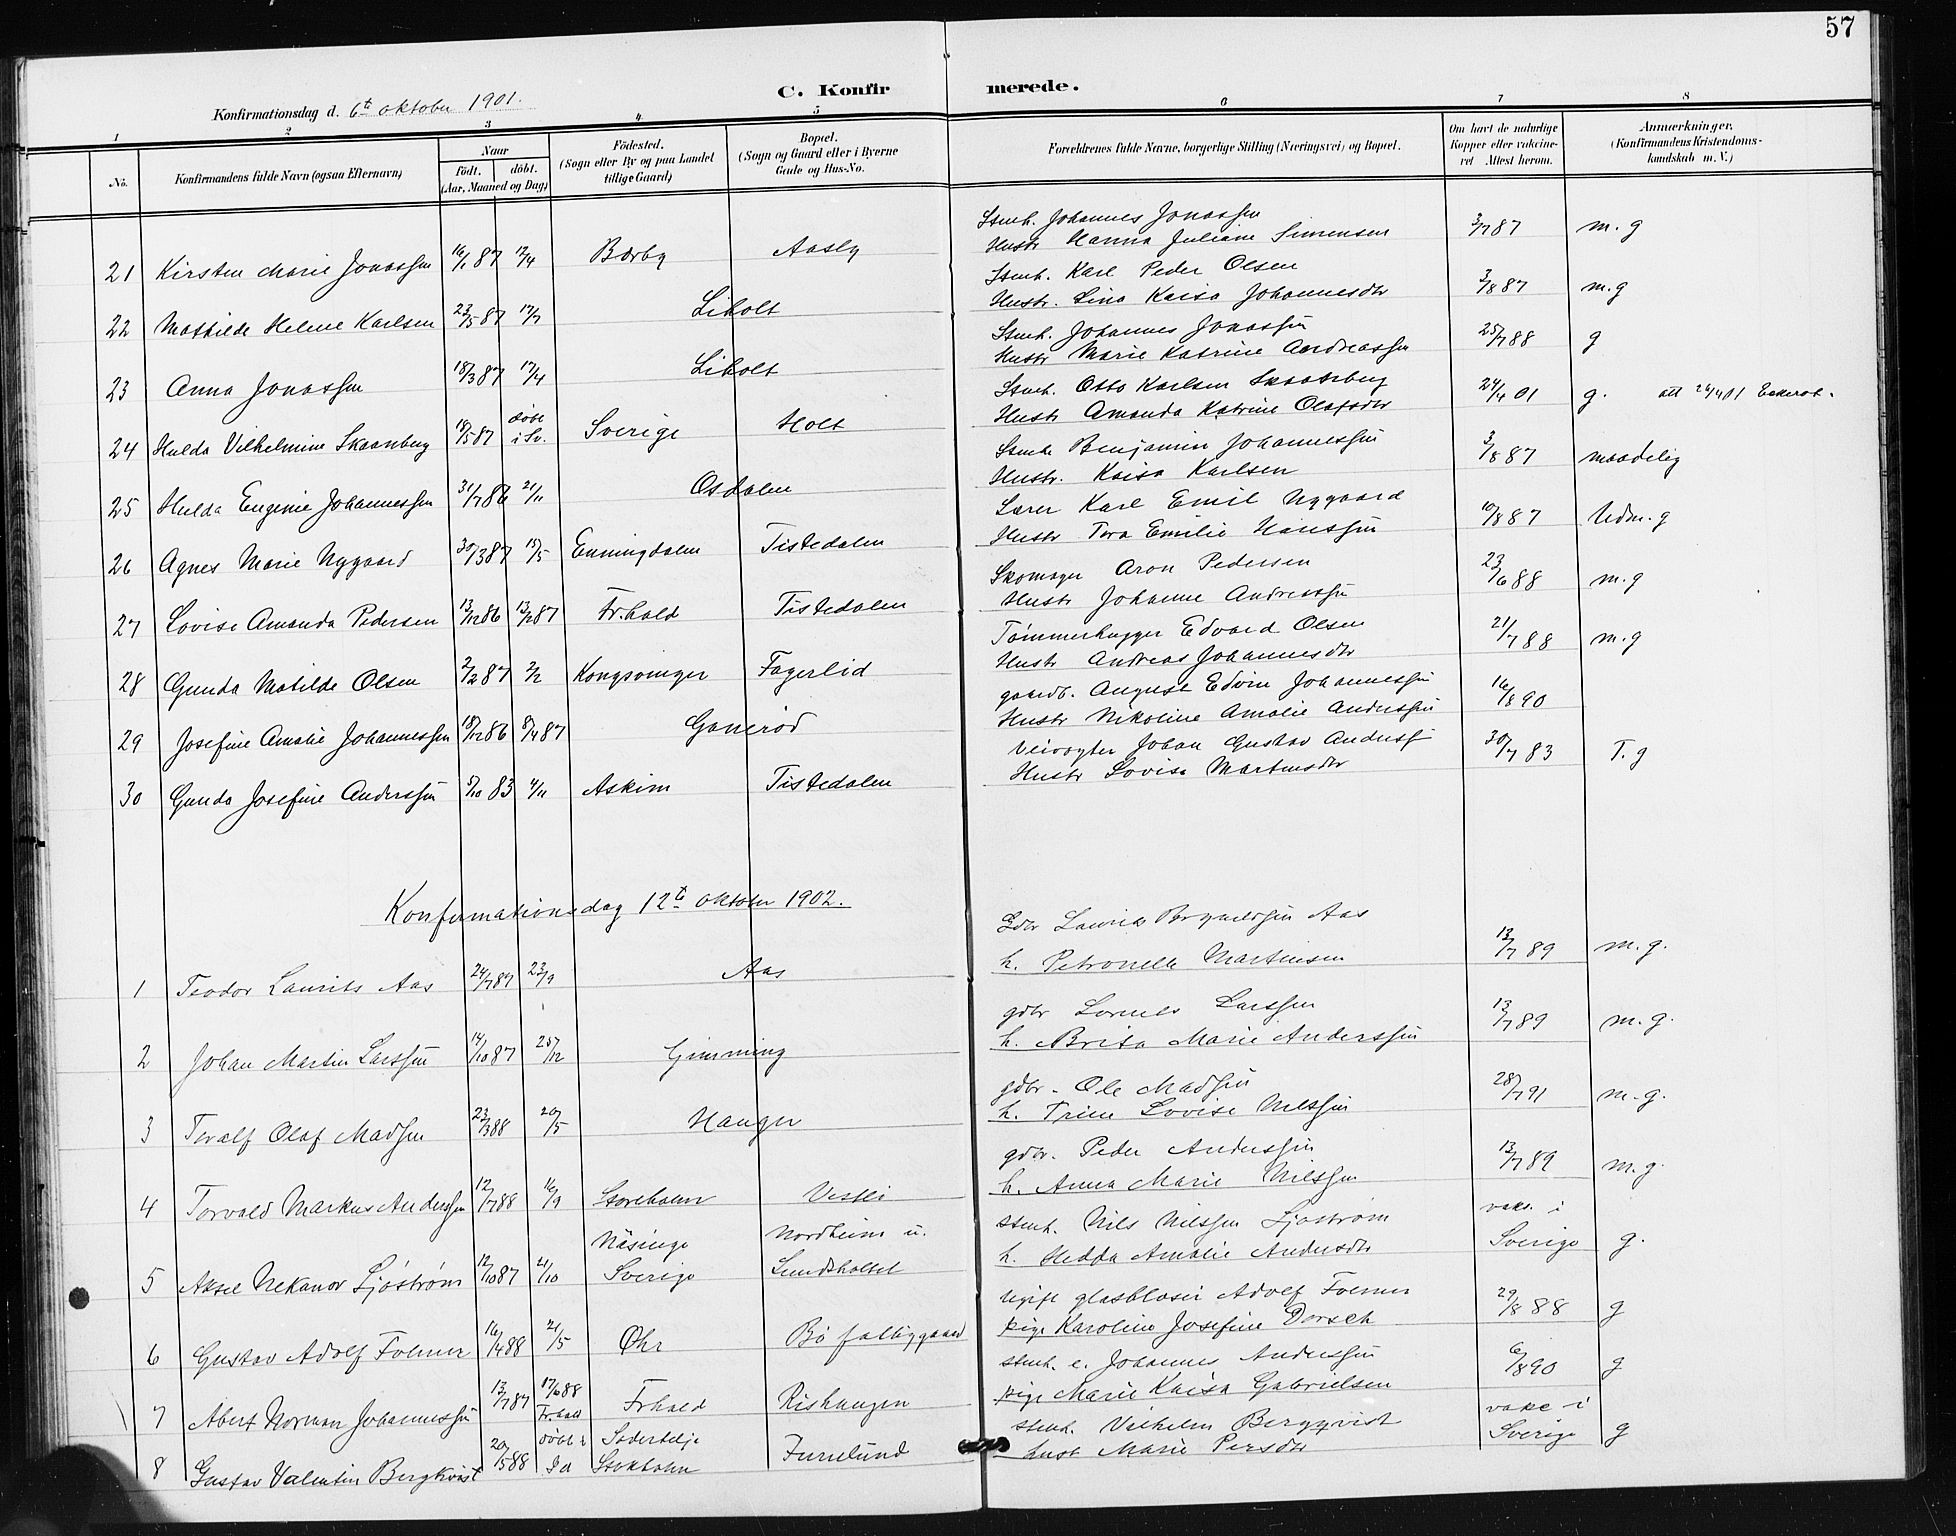 57
C. Konfirmerede.
Konfirmationsdag d. 6te oktober 1901.
1 2 3 4 5 6 7 8
No.
Konfirmandens fulde Navn (ogsaa Efternavn)
Naar
født. døbt.
(Aar, Maaned og Dag)
Fødested.
(Sogn eller By og paa Landet
tillige Gaard)
Bopæl.
(Sogn og Gaard eller i Byerne
Gade og Hus-No.
Forældrenes fulde Navne, borgerlige Stilling (Næringsvei) og Bopæl.
Om havt de naturlige
Kopper eller vakcine-
ret Attest herom.
Anmærkninger.
(Konfirmandens Kristendoms-
kundskab m. V.)
Stmh. Johannes Jonassen
21 Kirsten Marie Jonassen 16/1 87 17/4 Bærby Aasly Hustr Hanna Juliane Simensen 3/7 87 m.g
Stmh. Karl Peder Olsen
22 Mathilde Helene Karlsen 23/5 87 17/7 Liholt Hustr. Lina Kaisa Johannesdtr 3/8 87 m.g
Stmh. Johannes Jonassen
23 Anna Jonassen 18/3 87 17/4 Liholt Hustr Marie Katrine Andreassen 25/7 88 g
Stmh. Otto Karlsen
24 Hulda Vilhelmine Skaanberg 18/5 87 døbt i Sv. Sverige Holt Hustr Amanda Katrine Olafsdtr 24/4 01 g. att 26/4 01
Stmh Benjamin Johannessen
25 Hulda Eugenie Johannessen 31/7 86 21/11 Osdalen Hustr. Kaisa Karlsen 3/8 87 maadelig
Lærer Karl Emil Nygaard
26 Agnes Marie Nygaard 30/3 87 15/5 Enningdalen Tistedalen Hustr Tora Emilie Hanssen 10/8 87 Udm.g
Skomager Aron Pedersen
27 Lovise Amanda Pedersen 13/12 86 13/2 87 Fr.hald Tistedalen Hustr Johanne Andreassen 23/6 88 m.g
Tømmerhugger Edvard Olsen
28 Gunda Matilde Olsen 2/2 87 2/2 Kongsvinger Fagerlid Hustr Andrea Johannesdtr 21/7 88 m.g
gaardb. August Edvin Johannessen
29 Josefine Amalie Johannessen 18/12 86 8/4 87 Ganerød Hustr Nikoline Amalie Anderssen 16/8 90
Veivogter Johan Gustav Anderss
30 Gunda Josefine Anderssen 5/10 83 4/11 Askim Tistedalen Hustr Lovise Martinsdtr 30/7 83 T.g
Konfirmationsdag 12te oktober 1902.
Gdbr Laurits Aas
1 Teodor Laurits Aas 24/7 87 23/9 Aas h. Petronelle Martinsen 13/7 89 m.g.
gdbr Larssen
2 Johan Martin Larssen 14/10 87 25/12 Gimming h. Brita Marie Anderssen 13/7 89 m.g.
gdbr. Ole Madsen
3 Toralf Olaf Madsen 23/3 88 20/5 Hauger h. Trine Lovise Nilssen 28/7 91 m.g.
gdbr. Peder Anderssen
4 Torvald Markus Anderssen 12/7 88 16/9 Storeholm Vestli h. Anna Marie Nilssen 13/7 89 m.g.
Näsinge Nordheim u. stmh. Nils Nilssen Sjøstrøm vakc. i
5 Aksel Nekanor Sjøstrøm 12/10 87 21/10 Sverige Lundsholtet h. Hedda Amalie Andersdtr Sverige g.
Ugift glasblaser Adolf Folmer
6 Gustav Adolf Folmer 16/4 88 21/5 Øhr Bø pige Karoline Josefine Dorsch 29/8 88 g
stmh. e. Johannes Anderssen
7 Abert Norman Johannessen 13/7 87 17/6 88 Fr.hald Frhald Rishaugen pige Marie Kaisa Gabrielsen 6/8 90 g
døbt i Södertelje stmh. Vilhelm Bergqvist vakc i
8 Gustav Valentin Bergkvist 20/5 88 Stokholm Furulund hust Marie Persdtr Sverige g